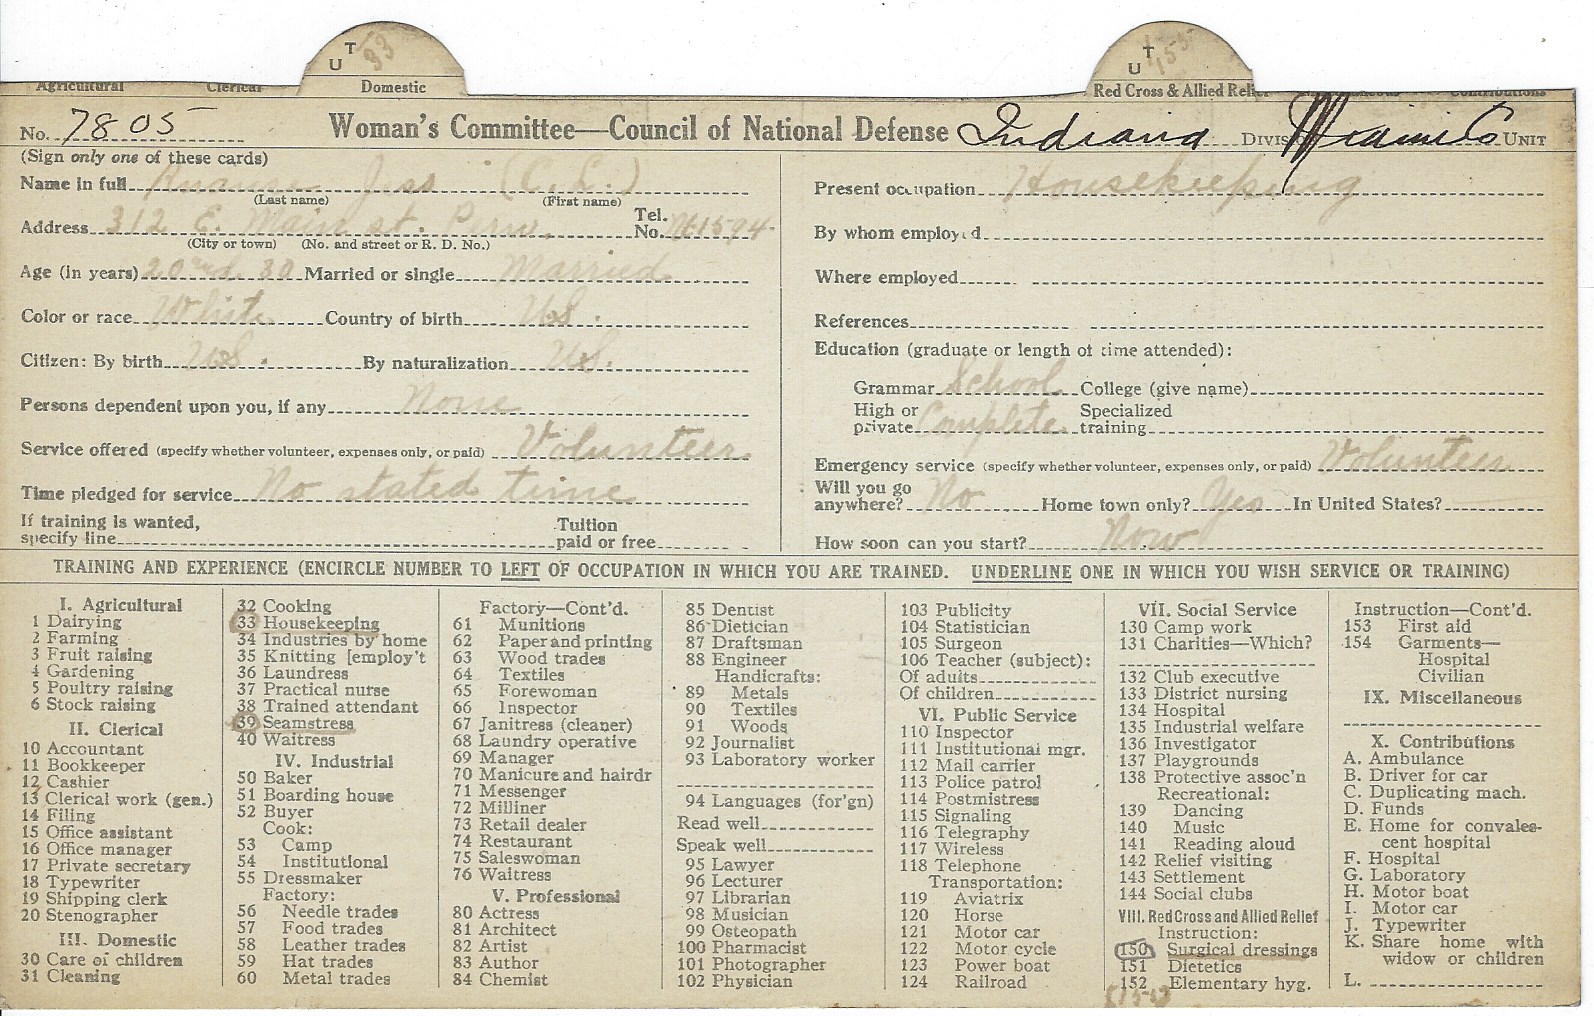 T
U
33
T
U
155
Agricultural Clerical Domestic Red Cross & Allied Relief Contributions
No. 7805 Woman's Committee—Council of National Defense Indiana Division Miami Co Unit
(Sign only one of these cards)
Name in full Jess (C. L.)
(Last name) (First name)
Address 312 E. Main st. Peru. Tel. No. 1594
(City or town) (No. and street or R. D. No.)
Age (in years) 30 Married or single Married
Color or race White Country of birth U.S.
Citizen: By birth U.S. By naturalization U.S.
Persons dependent upon you, if any None
Service offered (specify whether volunteer, expenses only, or paid) Volunteer
Time pledged for service No stated time
If training is wanted, specify line Tuition paid or free
Present occupation Housekeeping
By whom employed
Where employed
References
Education (graduate or length of time attended):
Grammar School College (give name)
High or private Complete Specialized training
Emergency service (specify whether volunteer, expenses only, or paid) Volunteer
Will you go anywhere? No Home town only? Yes In United States?
How soon can you start? Now
TRAINING AND EXPERIENCE (ENCIRCLE NUMBER TO LEFT OF OCCUPATION IN WHICH YOU ARE TRAINED. UNDERLINE ONE IN WHICH YOU WISH SERVICE OR TRAINING)
I. Agricultural
1 Dairying
2 Farming
3 Fruit raising
4 Gardening
5 Poultry raising
6 Stock raising
II. Clerical
10 Accountant
11 Bookkeeper
12 Cashier
13 Clerical work (gen.)
14 Filing
15 Office assistant
16 Office manager
17 Private secretary
18 Typewriter
19 Shipping clerk
20 Stenographer
III. Domestic
30 Care of children
31 Cleaning
32 Cooking
33 Housekeeping
34 Industries by home
35 Knitting [employ't
36 Laundress
37 Practical nurse
38 Trained attendant
39 Seamstress
40 Waitress
IV. Industrial
50 Baker
51 Boarding house
52 Buyer
Cook:
53 Camp
54 Institutional
55 Dressmaker
Factory:
56 Needle trades
57 Food trades
58 Leather trades
59 Hat trades
60 Metal trades
Factory—Cont'd.
61 Munitions
62 Paper and printing
63 Wood trades
64 Textiles
65 Forewoman
66 Inspector
67 Janitress (cleaner)
68 Laundry operative
69 Manager
70 Manicure and hairdr
71 Messenger
72 Milliner
73 Retail dealer
74 Restaurant
75 Saleswoman
76 Waitress
V. Professional
80 Actress
81 Architect
82 Artist
83 Author
84 Chemist
85 Dentist
86 Dietician
87 Draftsman
88 Engineer
Handicrafts:
89 Metals
90 Textiles
91 Woods
92 Journalist
93 Laboratory worker
94 Languages (for'gn)
Read well
Speak well
95 Lawyer
96 Lecturer
97 Librarian
98 Musician
99 Osteopath
100 Pharmacist
101 Photographer
102 Physician
103 Publicity
104 Statistician
105 Surgeon
106 Teacher (subject):
Of adults
Of children
VI. Public Service
110 Inspector
111 Institutional mgr.
112 Mail carrier
113 Police patrol
114 Postmistress
115 Signaling
116 Telegraphy
117 Wireless
118 Telephone
Transportation:
119 Aviatrix
120 Horse
121 Motor car
122 Motor cycle
123 Power boat
124 Railroad
VII. Social Service
130 Camp work
131 Charities—Which?
132 Club executive
133 District nursing
134 Hospital
135 Industrial welfare
136 Investigator
137 Playgrounds
138 Protective assoc'n
Recreational:
139 Dancing
140 Music
141 Reading aloud
142 Relief visiting
143 Settlement
144 Social clubs
VIII. Red Cross and Allied Relief
Instruction:
150 Surgical dressings
151 Dietetics
152 Elementary hyg.
Instruction—Cont'd.
153 First aid
154 Garments—
Hospital
Civilian
IX. Miscellaneous
X. Contributions
A. Ambulance
B. Driver for car
C. Duplicating mach.
D. Funds
E. Home for convales-
cent hospital
F. Hospital
G. Laboratory
H. Motor boat
I. Motor car
J. Typewriter
K. Share home with
widow or children
L.